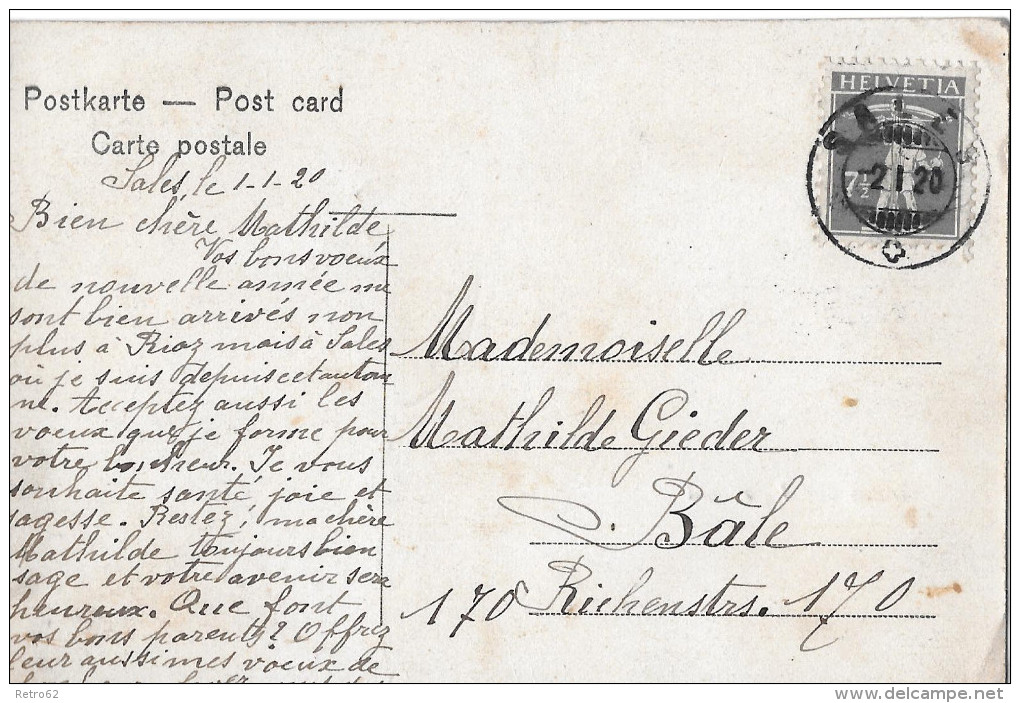 Postkarte — Post card
Carte postale
HELVETIA
7½
SALES
-2 I 20
Sales, le 1-1-20
Bien chère Mathilde
Vos bons voeux
de nouvelle année me
sont bien arrivés non
plus à Riaz mais à Sales
où je suis depuis cet autom
ne. Acceptez aussi les
voeux que je forme pour
votre bonheur. Je vous
souhaite santé, joie et
sagesse. Restez, ma chère
Mathilde toujours bien
sage et votre avenir sera
heureux. Que font
vos bons parents? Offrez
leur aussi mes voeux de
Mademoiselle
Mathilde Gieder
Bâle
170 Richenstrs. 170
Retro62
www.delcampe.net